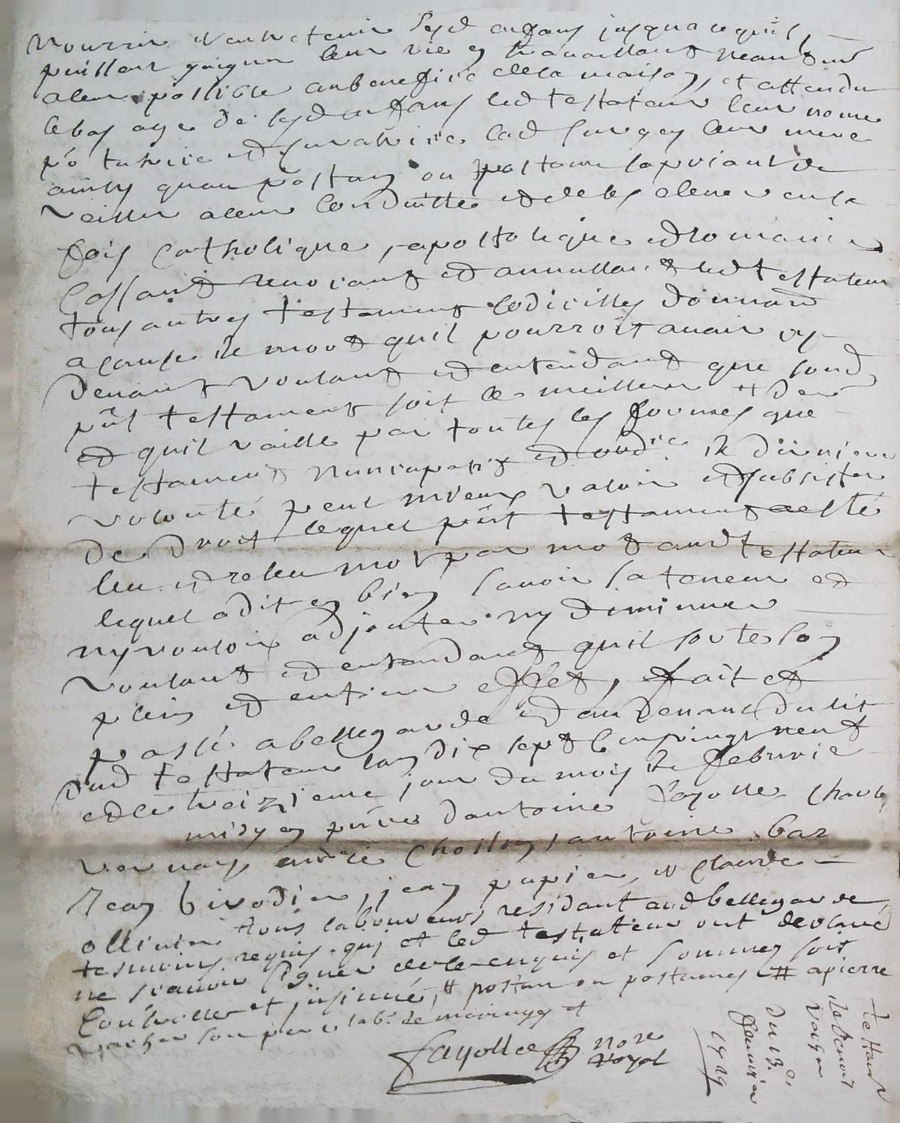 nourrir & entretenir lesd enfans jusqua cequils
puissent gaigner leur vie en travaillant neant ms
aleur possible aubenefice dela maison, et attendu
lebas age de lesd enfans led testateur leur nome
pr tutrice et curatrice lad leur mere
ainsy quau postan ou postume
veiller aleur conduitte et deles elever en la
fois catholique, apostolique et romaine
Cassant revocant et annullant led testateur
tous autres testament codicilles donnaon
acause de mort quil pourroit avoir cy
devant voulant et entendant que sond
pnt testament soit le meilleur
et quil vaille par toutes les formes que
testament nuncupatif et de derniere
volonté peut mieux valoir et subsister
de droit lequel pnt testament aesté
leu et releu mot par mot aud testateur
lequel adit en bien savoir la teneur et
ny vouloir adjouter ny diminuer
voulant et entandant quil sorte son
plein et entier effet, fait et
passé abellegarde et audevant du lit
dud testateur lan dix sept cent vingt neuf
et le treizieme jour du mois de febvrie
misy en pnce dantoine fayolle,
vernay, andré antoine bar
Jean birodier, jean papier, et claude
ollivier tous laboureurs residant aud bellegarde
tesmoins requis qui et led testateur ont declaré
ne scavoir signer de ce enquis et sommés soit
Controllé et jnsinué, # postan ou postumes # apierre
son pere de mariage et
Fayolle nore
royal
testament
de benoit
du 13e
febvrier
1729